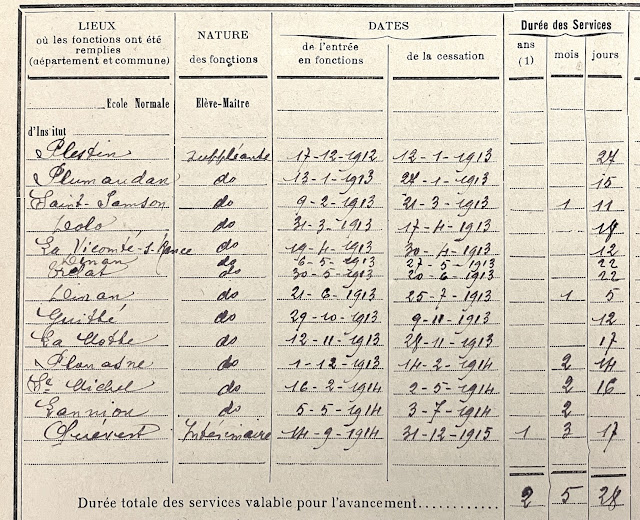 LIEUX
où les fonctions ont été
remplies
(département et commune)
NATURE
des fonctions
DATES
de l'entrée
en fonctions
de la cessation
Durée des Services
ans
(1)
mois
jours
Ecole Normale Elève-Maître
d'Institut
Plestin suppléante 17-12-1912 12-1-1913 27
Plumaudan do 13-1-1913 27-1-1913 15
Saint-Samson do 9-2-1913 21-3-1913 1 11
Dolo do 31-3-1913 17-4-1913 18
La Vicomté-s-Rance do 19-4-1913 30-4-1913 12
Dinan do 6-5-1913 27-5-1913 22
do 30-5-1913 20-6-1913 22
Dinan do 21-6-1913 25-7-1913 1 5
Guitté do 29-10-1913 9-11-1913 12
La Mothe do 12-11-1913 28-11-1913 17
Plouasne do 1-12-1913 14-2-1914 2 14
St Michel do 16-2-1914 2-5-1914 2 16
Lannion do 5-5-1914 3-7-1914 2
Quévert Intérimaire 14-9-1914 31-12-1915 1 3 17
Durée totale des services valable pour l'avancement............ 2 5 28